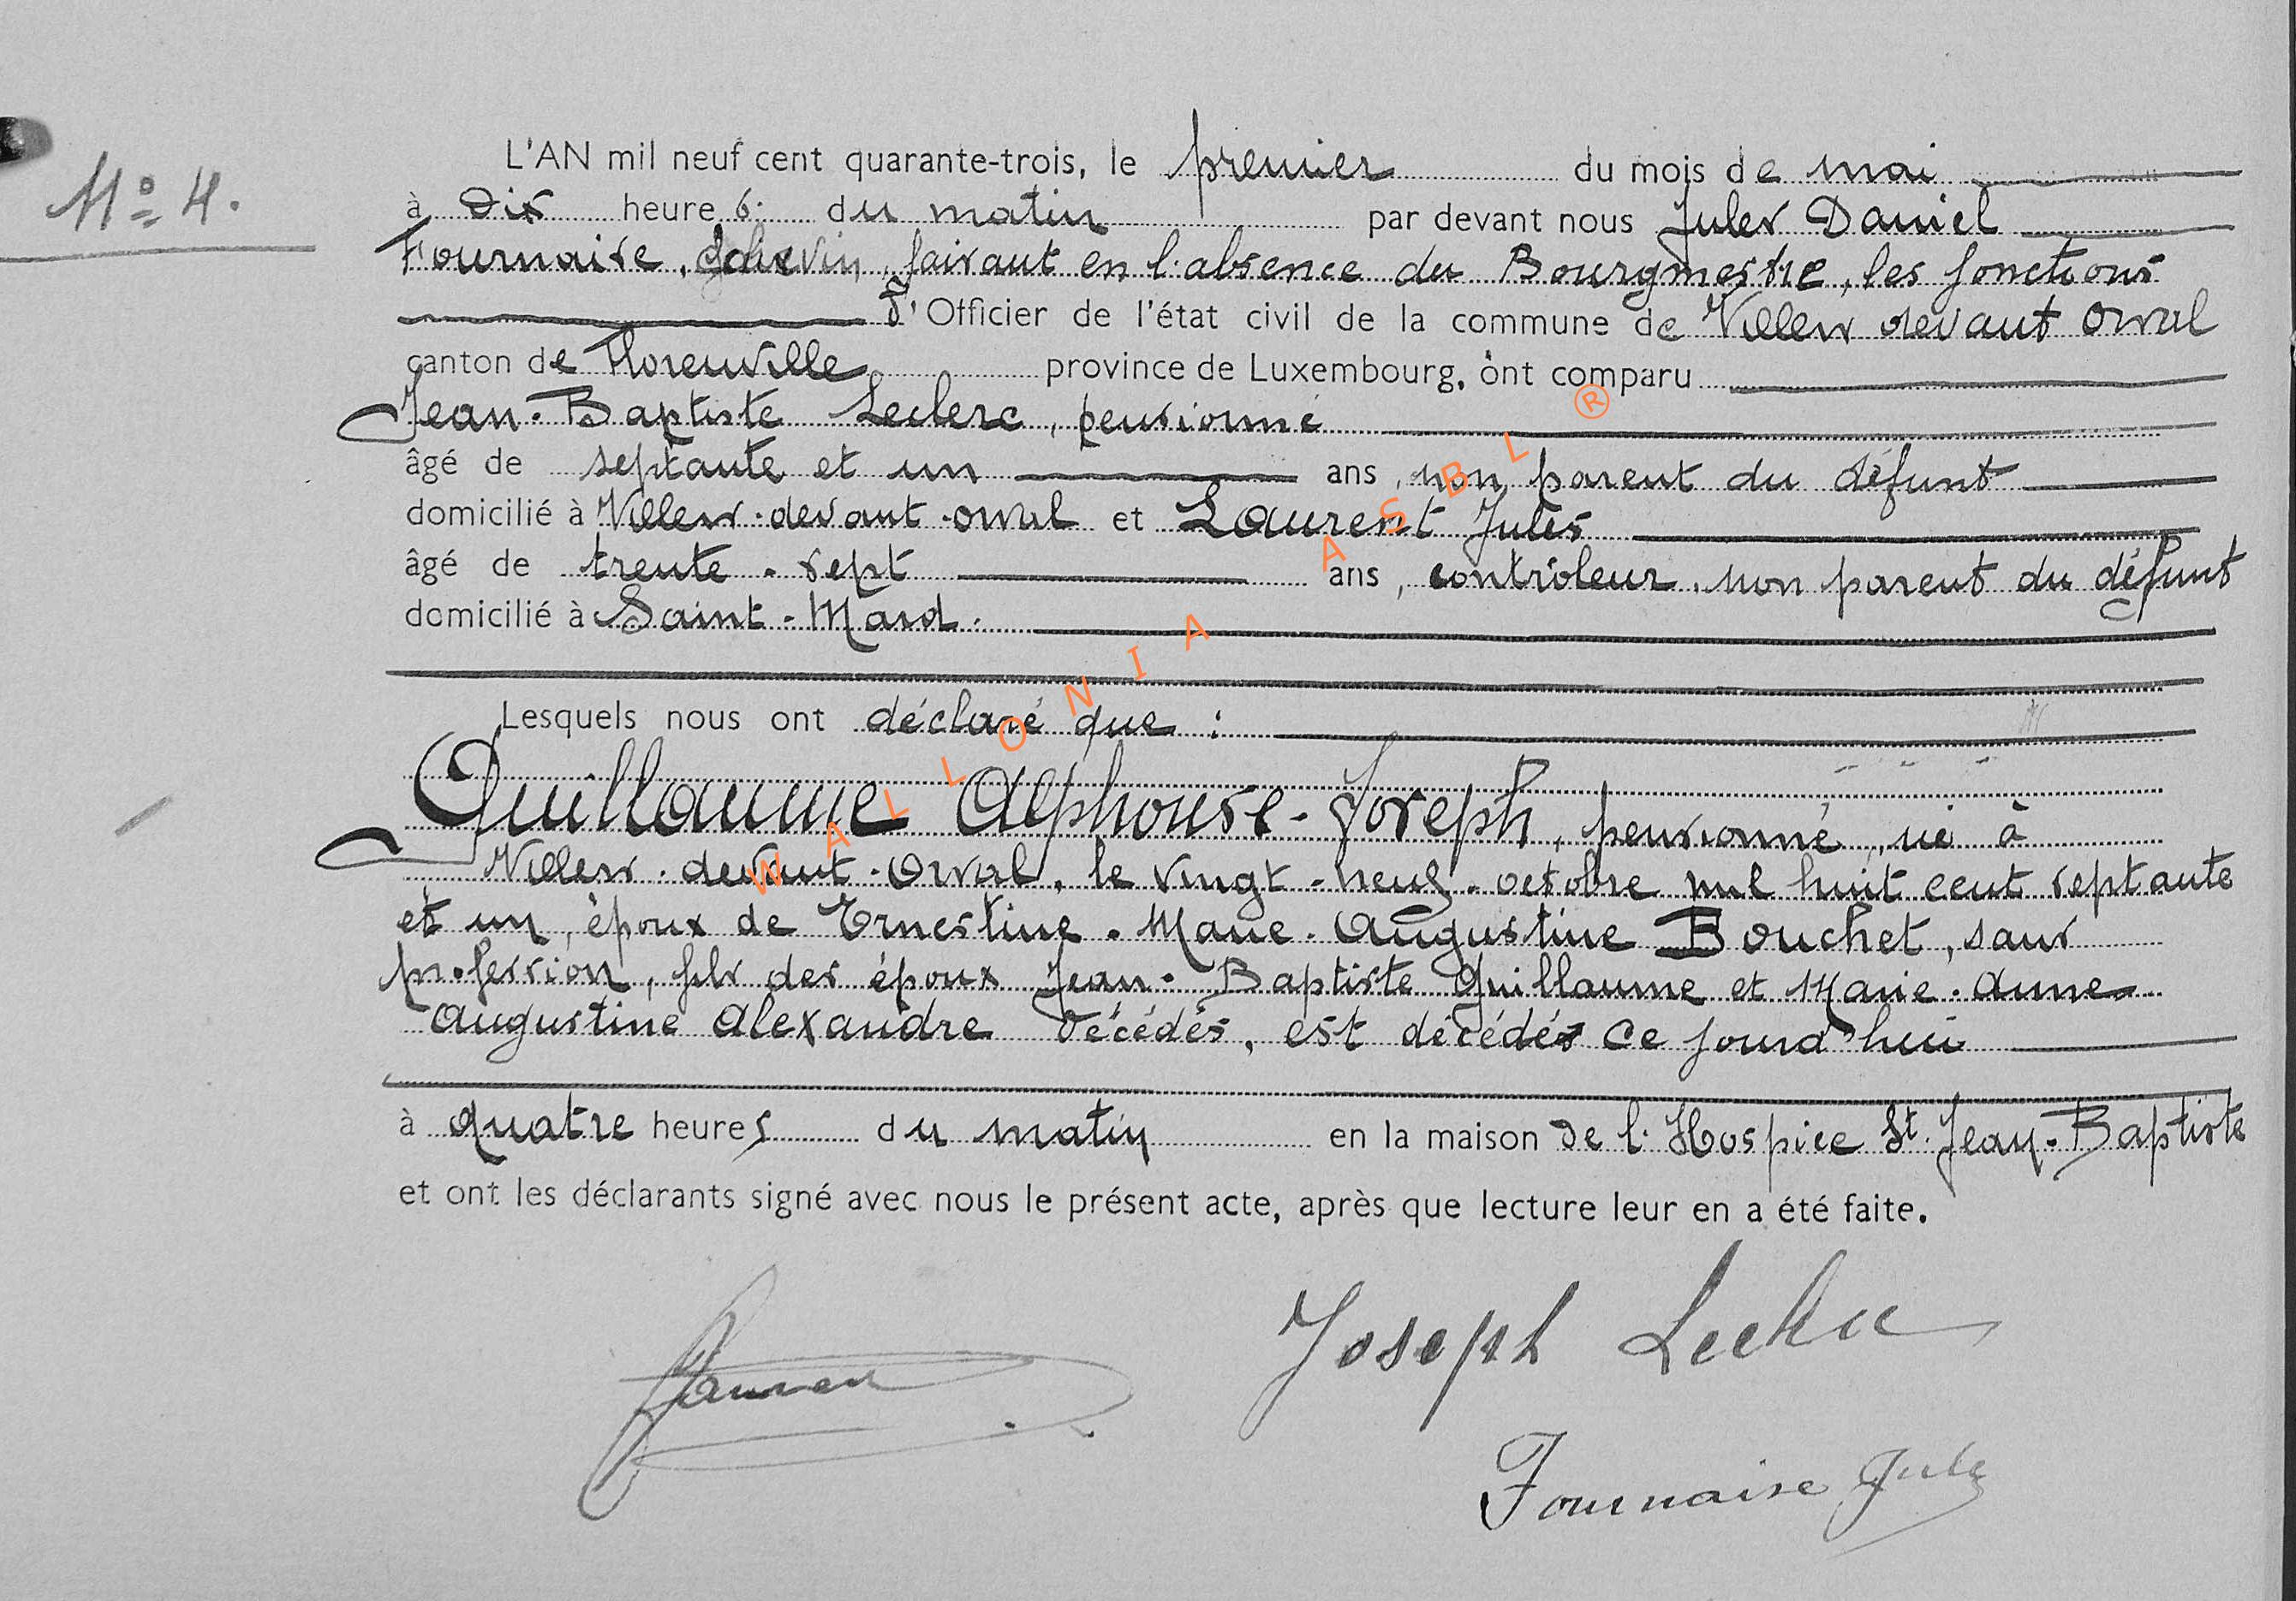 N° 4.
L'AN mil neuf cent quarante-trois, le premier du mois de mai
à Dix heures du matin par devant nous Jules Daniel
Fournaise, échevin, faisant en l'absence du Bourgmestre, les fonctions
d'Officier de l'état civil de la commune de Villers devant Orval
canton de Florenville province de Luxembourg, ont comparu
Jean-Baptiste Leclerc, pensionné
âgé de septante et un ans, non parent du défunt
domicilié à Villers-devant-Orval et Laurent Jules
âgé de trente-sept ans, contrôleur, non parent du défunt
domicilié à Saint-Mard.
Lesquels nous ont déclaré que :
Guillaume Alphonse-Joseph, pensionné, né à
Villers-devant-Orval, le vingt-neuf octobre mil huit cent septante
et un, époux de Ernestine-Marie-Augustine Bouchet, sans
profession, fils des époux Jean-Baptiste Guillaume et Marie-Anne
Augustine Alexandre décédés, est décédé ce jourd'hui
à quatre heures du matin en la maison de l'Hospice St. Jean-Baptiste
et ont les déclarants signé avec nous le présent acte, après que lecture leur en a été faite.
Joseph Leclerc
Fournaise Jules
WALLONIA ASBL ®